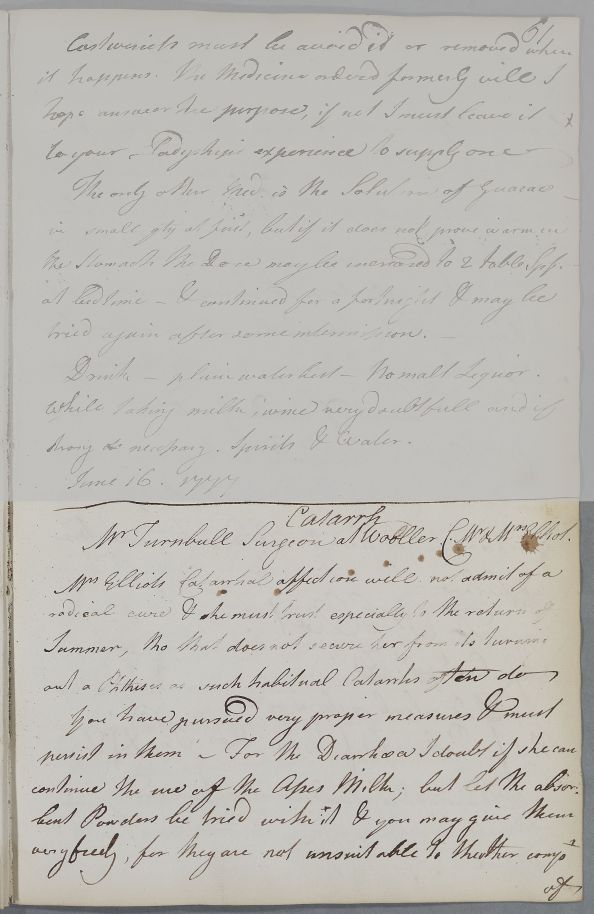 61
Costiveness must be avoided or removed when
it happens. The Medicine ordered formerly will I
hope answer the purpose, if not I must leave it
to your Ladyship's experience to supply one
The only other Med. is the Solution of Guaiac
in small qty at first, but if it does not prove warm in
the Stomach the Dose may be increased to 2 table Spf.
at bedtime – & continued for a fortnight & may be
tried again after some intermission. –
Drink – plain water best – No malt Liquor.
While taking milk, wine very doubtfull and if
strong necessary. Spirits & Water.
June 16. 1777
Catarrh
Mr Turnbull Surgeon at Wooller C. Mr & Mrs Elliot.
Mrs Elliots Catarrhal affection will not admit of a
radical cure & she must trust especially to the return of
Summer, tho that does not secure her from its turning
out a Phthisis as such habitual Catarrhs often do
You have pursued very proper measures & must
persist in them – For the Diarrhœa I doubt if she can
continue the use of the Asses Milk; but let the absor-
bent Powders be tried with it & you may give them
very freely, for they are not unsuitable to the other compts
of